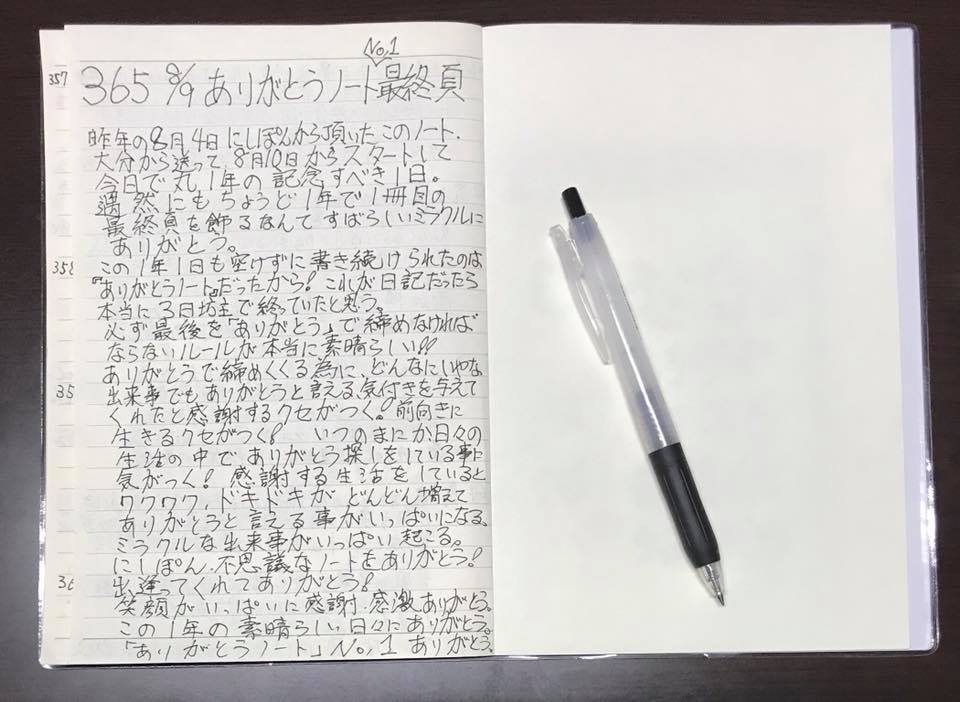 No.1
357
365 8/9 ありがとうノート最終頁
昨年の8月4日にしぽんから頂いたこのノート.
大分から送って、8月10日からスタートして
今日で丸1年の記念すべき1日。
偶然にもちょうど1年で1冊目の
最終頁を飾るなんてすばらしいミラクルに
ありがとう。
358
この1年1日も空けずに書き続けられたのは
『ありがとうノート』だったから!これが日記だったら
本当に3日坊主で終っていたと思う。
必ず最後を「ありがとう」で締めなければ
ならないルールが本当に素晴らしい!!
ありがとうで締めくくる為に、どんなにいやな
35
出来事でもありがとうと言える、気付きを与えて
くれたと感謝するクセがつく!前向きに
生きるクセがつく! いつのまにか日々の
生活の中でありがとう探しをしている事に
気がつく!感謝する生活をしていると
ワクワク、ドキドキがどんどん増えて
ありがとうと言える事がいっぱいになる、
ミラクルな出来事がいっぱい起こる。
にしぽん、不思議なノートをありがとう!
36
出逢ってくれてありがとう!
笑顔がいっぱいに感謝.感激ありがとう。
この1年の素晴らしい日々にありがとう。
「ありがとうノート」No,1 ありがとう。